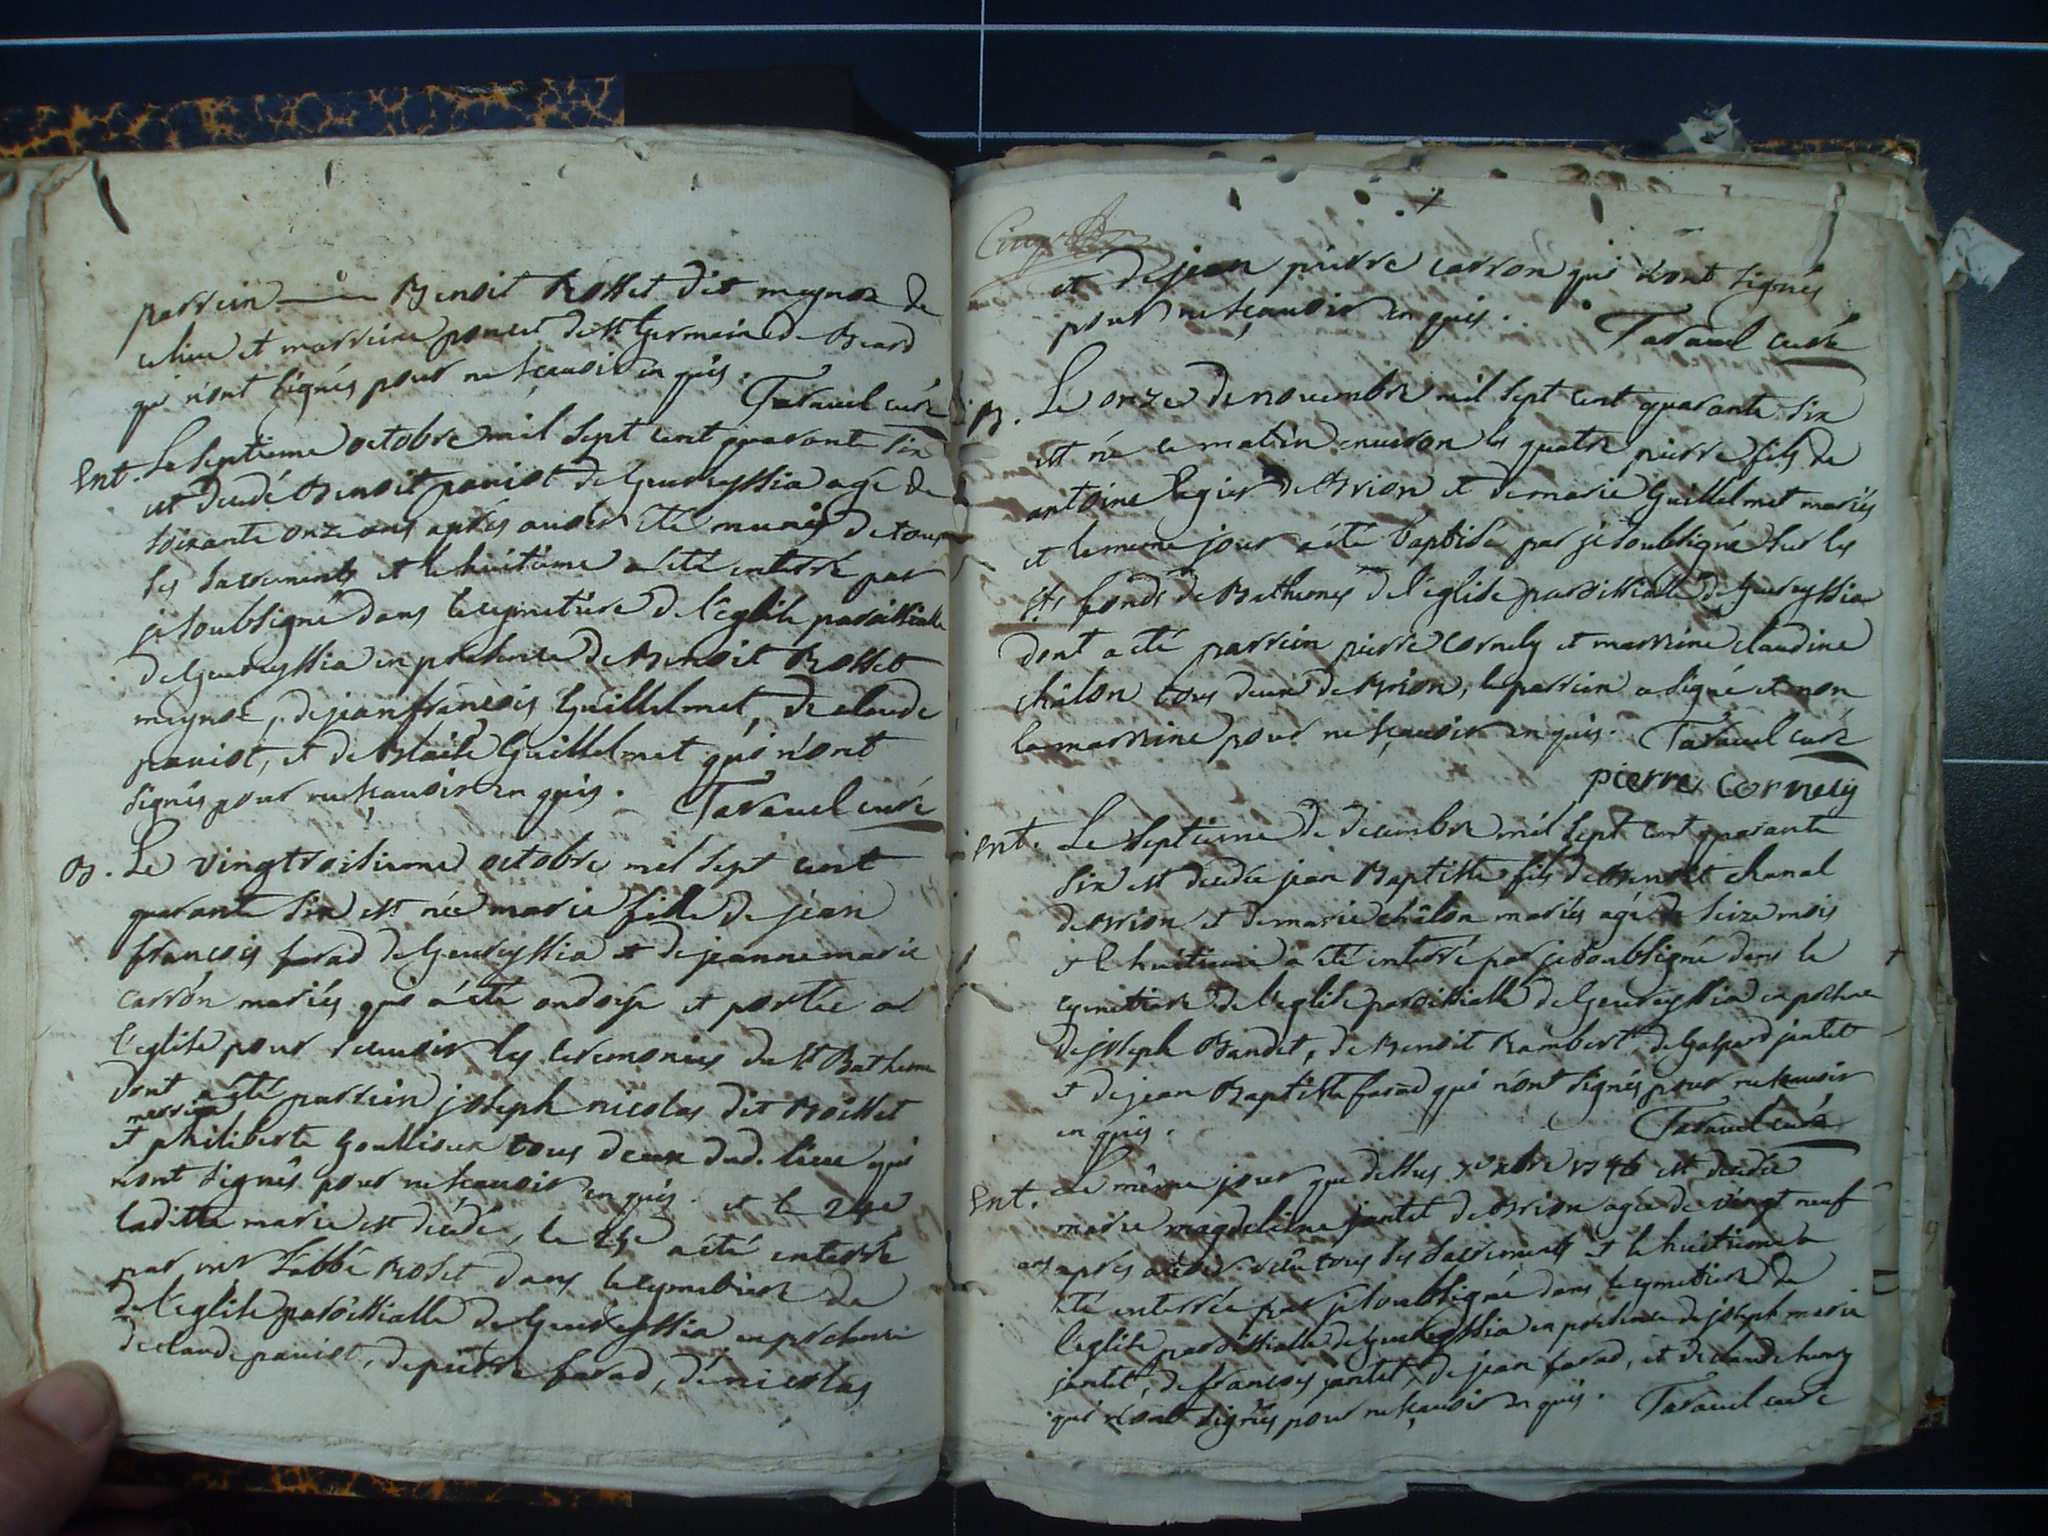 parrein Benoit Rosset dit meynoz de
celieu et marreine poncet de St Germain de Beard
qui n'ont signés pour ne scavoir en quis.
Taravel curé
Ent. Le Septieme octobre mil Sept cent quarante Six
est decedé Benoit paniot de Geureyssia agé de
soixante onze ans aprés avoir eté munis de tous
les sacrements et le huitieme a eté enterré par
je soubsigné dans le cymetiere de l'eglise paroissialle
de Geureyssia en presence de Benoit Rosset
meynoz, de jean françois Guillelmet, de claude
paniot, et de Blaise Guillelmet qui n'ont
signés pour ne scavoir en quis. Taravel curé
B. Le vingtroisieme octobre mil sept cent
quarante Six est née marie fille de jean
françois farad de Geureyssia et de jeanne marie
carron mariés qui a eté ondoyé et portée a
l'eglise pour recevoir les ceremonies du St Batheme
dont a eté parrein joseph nicolas dit Boisset
marreine
et philiberte Goullioux tous deux dud. lieu qui
n'ont signés pour ne scavoir en quis. et le 24e
laditte marie est décédé, le 25e a eté enterré
par mr l'abbé Roset dans le cymetiere de
de l'eglise paroissialle de Geureyssia en presence
de claude paniot, de pierre farad, de nicolas
et de jean pierre carron qui n'ont signés
pour ne scavoir en quis.
Taravel curé
B. Le onze de novembre mil sept cent quarante six
est né ce matin environ les quatre pierre fils de
antoine legier de Brion et de marie Guillelmet mariés
et le meme jour a eté baptisé par je soubsigné sur les
Sts fonds de Bathemes de l'eglise paroissialle de Geureyssia
dont a eté parrein pierre cornely et marreine claudine
châlon tous deux de Brion, le parrein a signé et non
la marreine pour ne scavoir en quis. Taravel curé
pierre cornely
Ent. Le Septieme de decembre mil sept cent quarante
six est decedée jean Baptiste fils de Benoit chanal
de Brion et de marie châlon mariés agé de seize mois
et le huitieme a eté enterré par je soubsigné dans le
cymetiere de l'eglise paroissialle de Geureyssia en presence
de joseph Bandet, de Benoit Rambert de Gaspard jantet
et de jean Baptiste farad qui n'ont signés pour ne scavoir
en quis.
Taravel curé
Ent. Le même jour que dessus xbre 1746 est decedée
marie magdeleine jantet de Brion agée de vingt neuf
ans aprés avoir reçû tous les sacrements et le huitieme a
eté enterrée par je soubsigné dans le cymetiere de
l'eglise paroissialle de Geureyssia en presence de joseph marie
jantet, de françois jantet, de jean farad, et de claude
qui n'ont signés pour ne scavoir en quis. Taravel curé